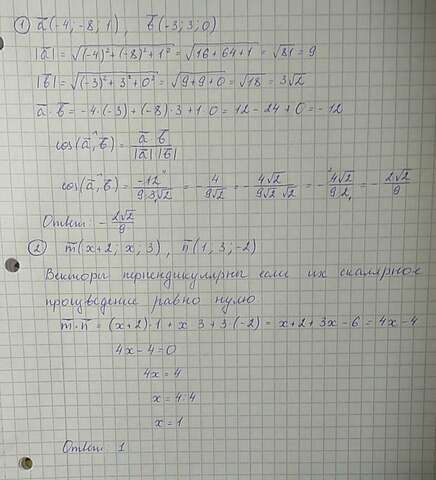 ① a̅(-4; -8; 1), b̅(-3; 3; 0)
|a̅| = √((-4)²+(-8)²+1²) = √(16+64+1) = √81 = 9
|b̅| = √((-3)²+3²+0²) = √(9+9+0) = √18 = 3√2
a̅·b̅ = -4·(-3)+(-8)·3+1·0 = 12-24+0 = -12
cos(a̅,^b̅) = a̅ b̅ / |a̅| |b̅|
cos(a̅,^b̅) = -12/(9·3√2) = -4/(9√2) = -4√2/(9√2 √2) = -4√2/(9·2) = -2√2/9
Ответ: -2√2/9
② m̅(x+2; x; 3), n̅(1; 3; -2)
Векторы перпендикулярны если их скалярное
произведение равно нулю
m̅·n̅ = (x+2)·1 + x·3+3·(-2) = x+2+3x-6 = 4x-4
4x-4=0
4x=4
x=4:4
x=1
Ответ: 1